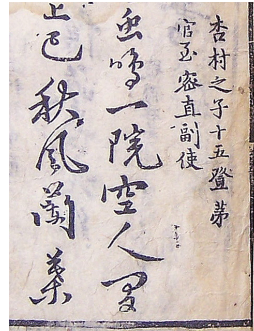 杏村之子十五登第
官至密直副使
虫鳴一院空人
上巳秋風蘭葉